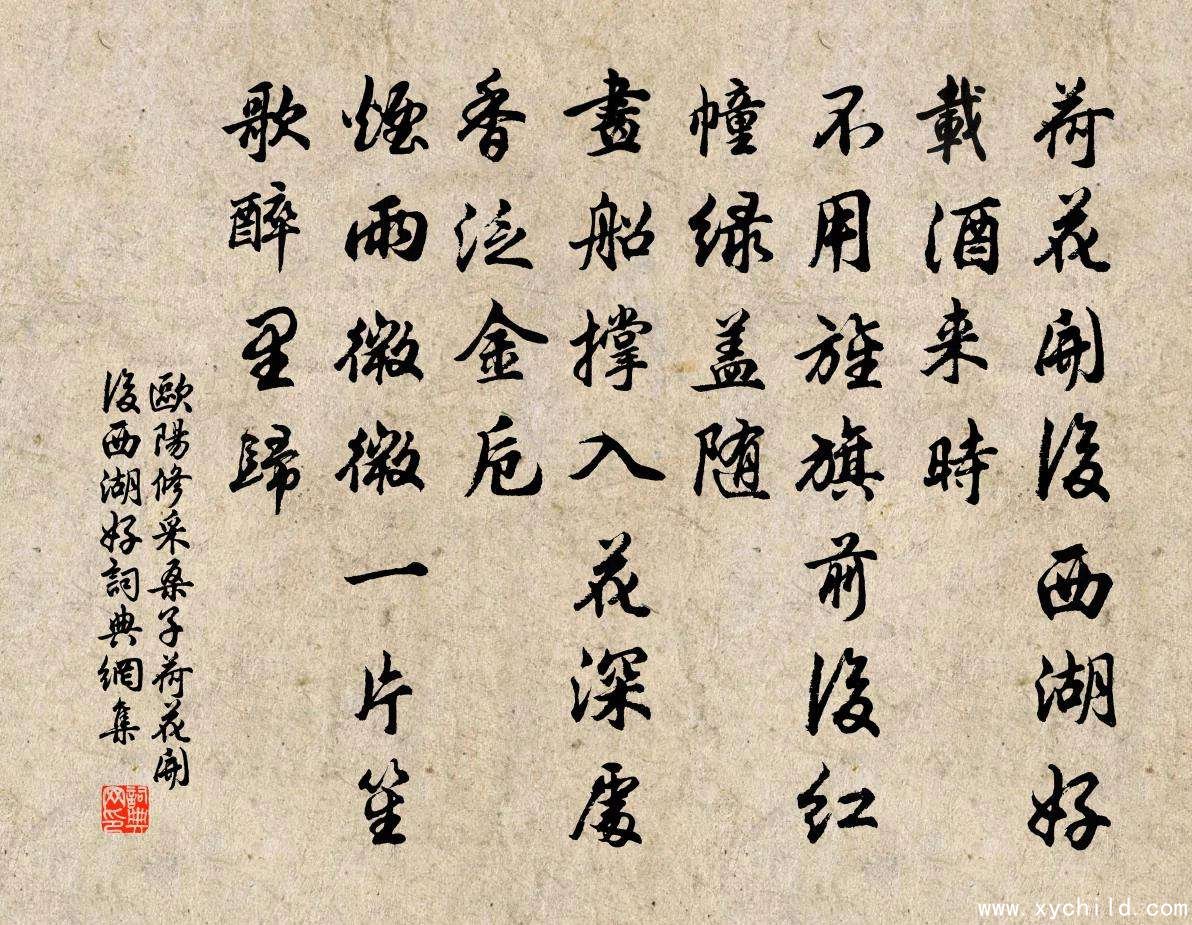 荷花開後西湖好
載酒来時
不用旌旗前後红
幢绿盖随
畫船撑入花深處
香泛金卮
煙雨微微一片笙
歌醉里歸
歐陽修采桑子荷花開
後西湖好詞典網集
詞典
网印
www.xychild.com